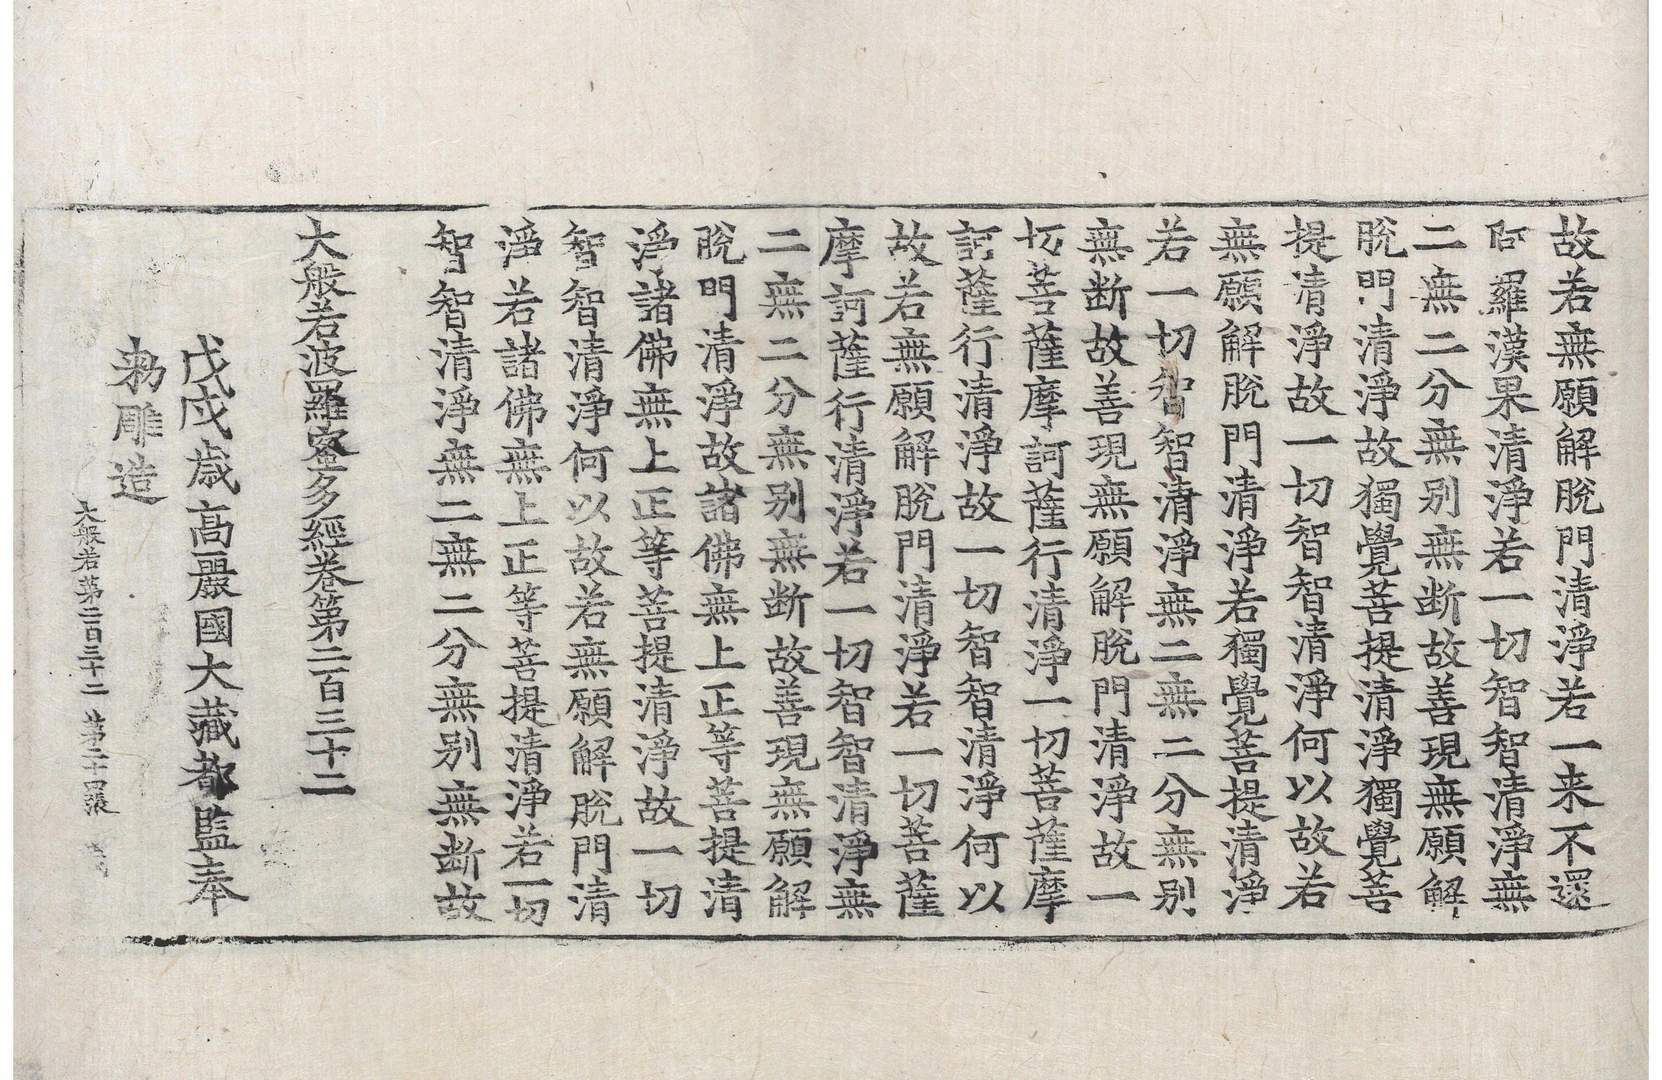 故若無願解脫門清淨若一来不還
阿羅漢果清淨若一切智智清淨無
二無二分無别無断故善現無願解
脫門清淨故獨覺菩提清淨獨覺菩
提清淨故一切智智清淨何以故若
無願解脫門清淨若獨覺菩提清淨
若一切智智清淨無二無二分無别
無断故善現無願解脫門清淨故一
切菩薩摩訶薩行清淨一切菩薩摩
訶薩行清淨故一切智智清淨何以
故若無願解脫門清淨若一切菩薩
摩訶薩行清淨若一切智智清淨無
二無二分無别無断故善現無願解
脫門清淨故諸佛無上正等菩提清
淨諸佛無上正等菩提清淨故一切
智智清淨何以故若無願解脫門清
淨若諸佛無上正等菩提清淨若一切
智智清淨無二無二分無别無断故
大般若波羅蜜多經卷第二百三十二
戊戌歲高麗國大藏都監奉
勑雕造
大般若第二百三十二 第二十四張